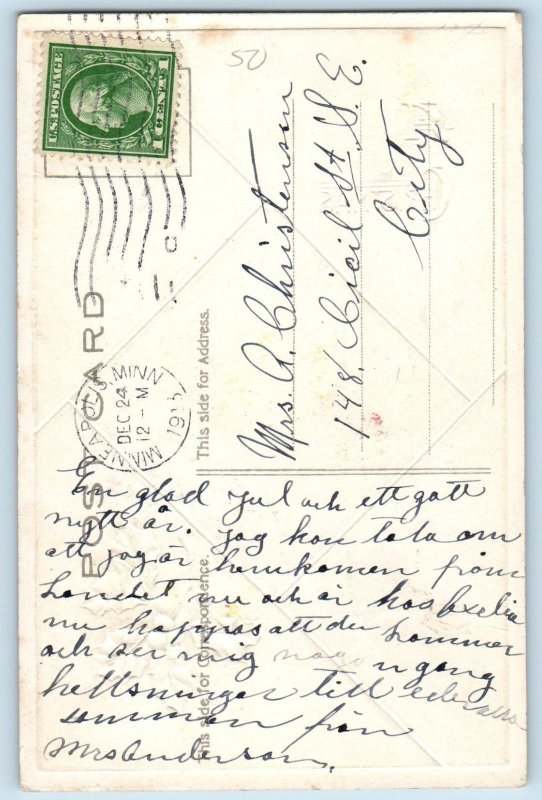 U.S. POSTAGE
1 CENT 1
50
MINNEAPOLIS, MINN
DEC 24
12 - M
POST CARD
This side for Address.
This side for Correspondence.
Mrs. A. Christensen
148, Cicil St S. E.
City
En glad jul och ett gott
nytt år. jag kan tala om
att jag är hemkomen från
landet nu och är hos
nu hoppas att du kommer
och ser mig någon gång
hellsningar till eder alla
samman från
Mrs Anderson,